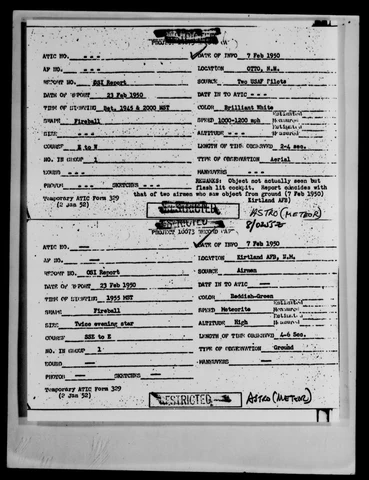 RESTRICTED
PROJECT 10073 RECORD CARD
ATIC NO. - - - DATE OF INFO 7 Feb 1950
AF NO. - - - LOCATION OTTO, N.M.
REPORT NO. OSI Report SOURCE Two USAF Pilots
DATE OF REPORT 23 Feb 1950 DATE IN TO ATIC - - -
TIME OF SIGHTING Bet. 1945 & 2000 MST COLOR Brilliant White
SHAPE Fireball SPEED 1000-1200 mph Estimated Measured
SIZE - - - ALTITUDE - - - Estimated Measured
COURSE E to N LENGTH OF TIME OBSERVED 2-4 sec.
NO. IN GROUP 1 TYPE OF OBSERVATION Aerial
SOUND - - - MANEUVERS - - -
PHOTOS - - - SKETCHES - - - REMARKS: Object not actually seen but
flash lit cockpit. Report coincides with
that of two airmen who saw object from ground (7 Feb 1950)
Temporary ATIC Form 329 Kirtland AFB)
(2 Jan 52) RESTRICTED ASTRO (METEOR)
PROJECT 10073 RECORD CARD
ATIC NO. — DATE OF INFO 7 Feb 1950
AF NO. — LOCATION Kirtland AFB, N.M.
REPORT NO. OSI Report SOURCE Airmen
DATE OF REPORT 23 Feb 1950 DATE IN TO ATIC —
TIME OF SIGHTING 1955 MST COLOR Reddish-Green
SHAPE Fireball SPEED Meteorite Estimated Measured
SIZE Twice evening star ALTITUDE High Estimated Measured
COURSE SSE to E LENGTH OF TIME OBSERVED 4-6 Sec.
NO. IN GROUP 1 TYPE OF OBSERVATION Ground
SOUND — MANEUVERS —
PHOTOS — SKETCHES —
Temporary ATIC Form 329
(2 Jan 52) RESTRICTED ASTRO (METEOR)